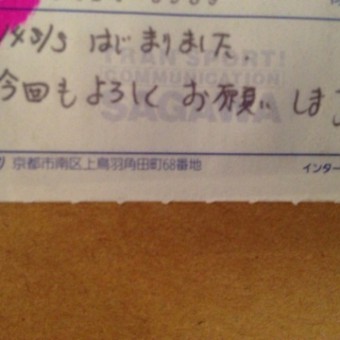 はじまりました.
今回もよろしくお願いしま
TRANSPORT!
COMMUNICATION
SAGAWA
京都市南区上鳥羽角田町68番地
インター